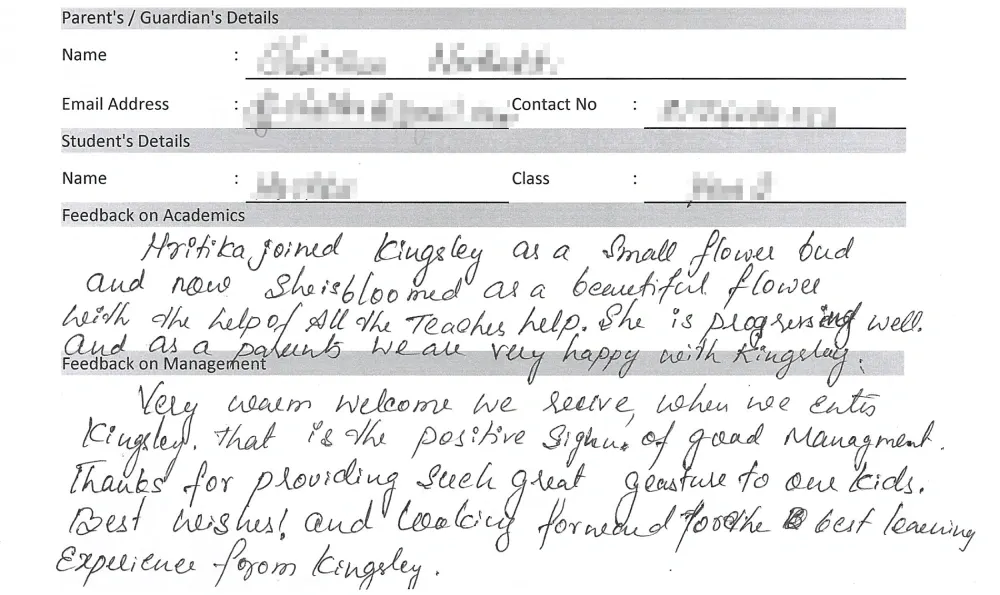 Parent's / Guardian's Details
Name :
Email Address : Contact No :
Student's Details
Name : Class :
Feedback on Academics
Hritika joined Kingsley as a small flower bud
and now she is bloomed as a beautiful flower
with the help of All the Teaches help. She is progressing well.
And as a parents we are very happy with Kingsley.
Feedback on Management
Very warm welcome we receive, when we enter
Kingsley. That is the positive sign of good Managment.
Thanks for providing such great geasture to our kids.
Best wishes! and Looking forward for the best learning
Experience from Kingsley.